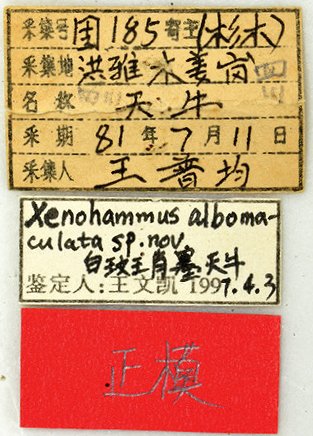 采集号 国185 寄主 (杉木)
采集地 洪雅木姜岗 四川
名称 天牛
采期 81年7月11日
采集人 王香均
Xenohammus alboma-
culata sp.nov.
白玟肖墨天牛
鉴定人:王文凯 1997.4.3
正模